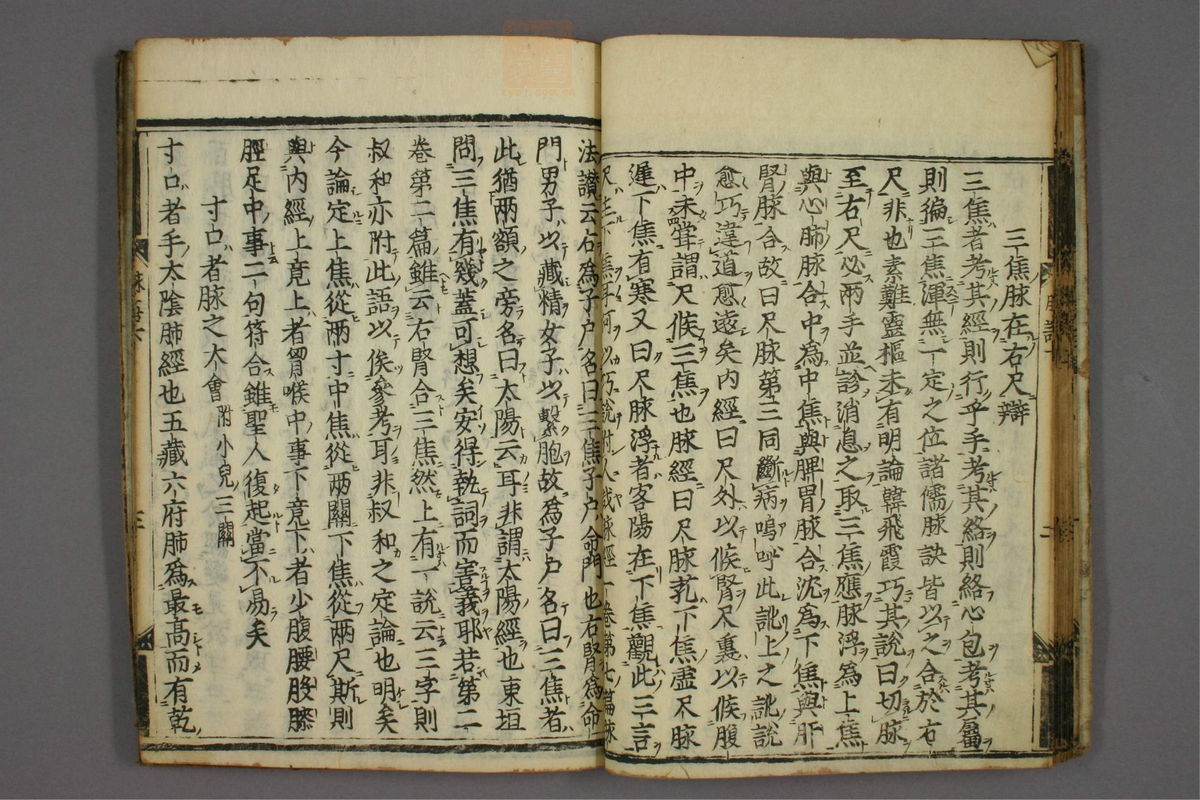 三焦脉在右尺辯
三焦者考其經則行乎手考其絡則絡心包考其屬
則徧三焦渾無一定之位諸儒脉訣皆以之合於右
尺非也素難靈樞未有明論韓飛霞巧其說曰切脉
至右尺必兩手並診消息之取三焦應脉浮為上焦
與心肺脉合中為中焦與脾胃脉合沈為下焦與肝
腎脉合故曰尺脉第三同斷病嗚呼此訛上之訛說
愈巧違道愈遠矣內經曰尺外以候腎尺裏以候腹
中未聳謂尺候三焦也脉經曰尺脉芤下焦虛尺脉
遲下焦有寒又曰尺脉浮者客陽在下焦觀此三言
焦耳何以巧說附人哉脉經一卷第七篇脉
法讃云右為子戶名曰三焦子戶命門也右腎為命
門男子以藏精女子以繫胞故為子戶名曰三焦者
此猶兩額之旁名曰太陽云耳非謂太陽經也東垣
問三焦有幾蓋可想矣安得執詞而害義耶若第二
卷第二篇雖云右腎合三焦然上有一說云三字則
叔和亦附此語以俟參考耳非叔和之定論也明矣
今論定上焦從兩寸中焦從兩關下焦從兩尺斯則
與內經上竟上者胷喉中事下竟下者少腹腰股膝
脛足中事二句符合雖聖人復起當不易矣
寸口者脉之大會附小兒三關
寸口者手太陰肺經也五藏六府肺為最高而有乾